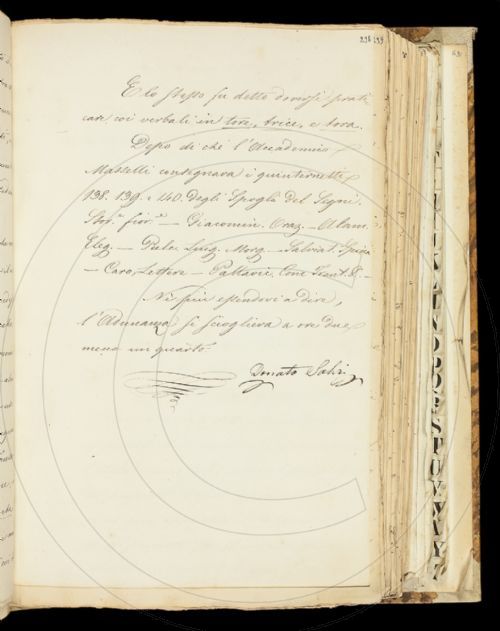 E lo stesso fu detto doversi prati-
care coi verbali in tore, trice, e tora.
Dopo di che l'Accademico
Masselli consegnava i quinternetti
138. 139. e 140. degli Spogli del Segni.
Stor. fior. — Giacomin. Oraz. — Alam.
Eleg. — Pulc. Luig. Morg. — Salviat. Spina
— Caro, Lettere — Pallavic. Conc. Trent. &. —
Nè più essendovi a dire,
l'Adunanza si scioglieva a ore due
meno un quarto.
Donato Salvi